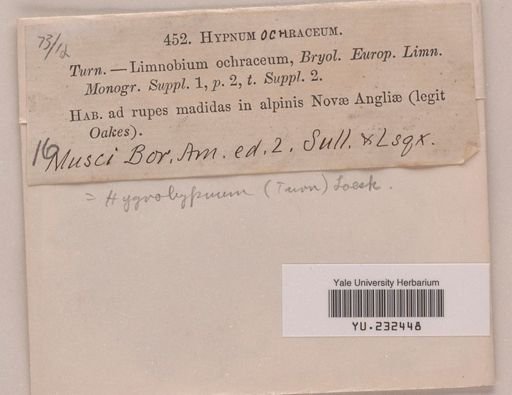 73/12
452. HYPNUM OCHRACEUM.
Turn. — Limnobium ochraceum, Bryol. Europ. Limn.
Monogr. Suppl. 1, p. 2, t. Suppl. 2.
HAB. ad rupes madidas in alpinis Novæ Angliæ (legit
Oakes).
16 Musci Bor. Am. ed. 2. Sull. & Lsqx.
= Hygrohypnum (Turn) Loesk.
Yale University Herbarium
YU.232448